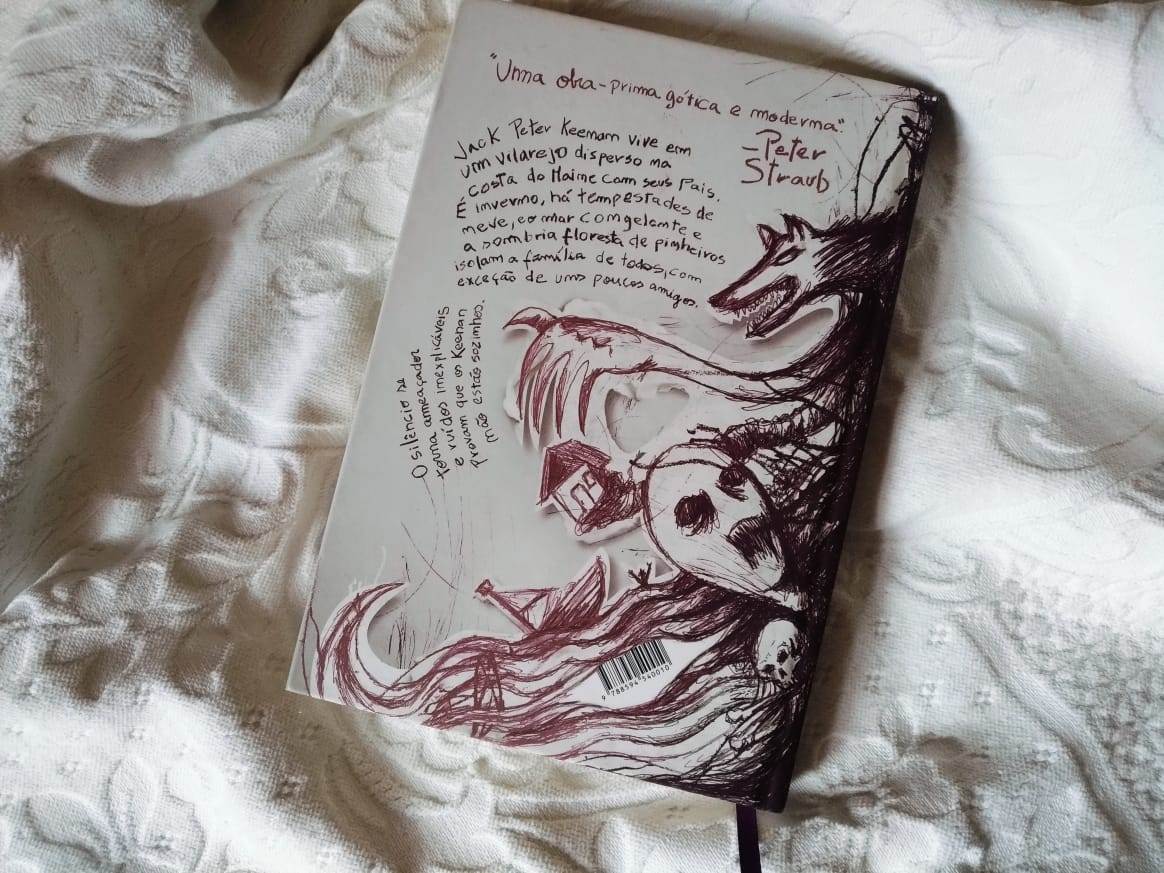 "Uma obra-prima gótica e moderna".
-Peter
Straub
Jack Peter Keenan vive em
um vilarejo disperso na
costa do Maine com seus pais.
É inverno, há tempestades de
neve, e o mar congelante e
a sombria floresta de pinheiros
isolam a família de todos, com
exceção de uns poucos amigos.
O silêncio se
torna ameaçador
e ruídos inexplicáveis
provam que os Keenan
não estão sozinhos.
9 788594 540010